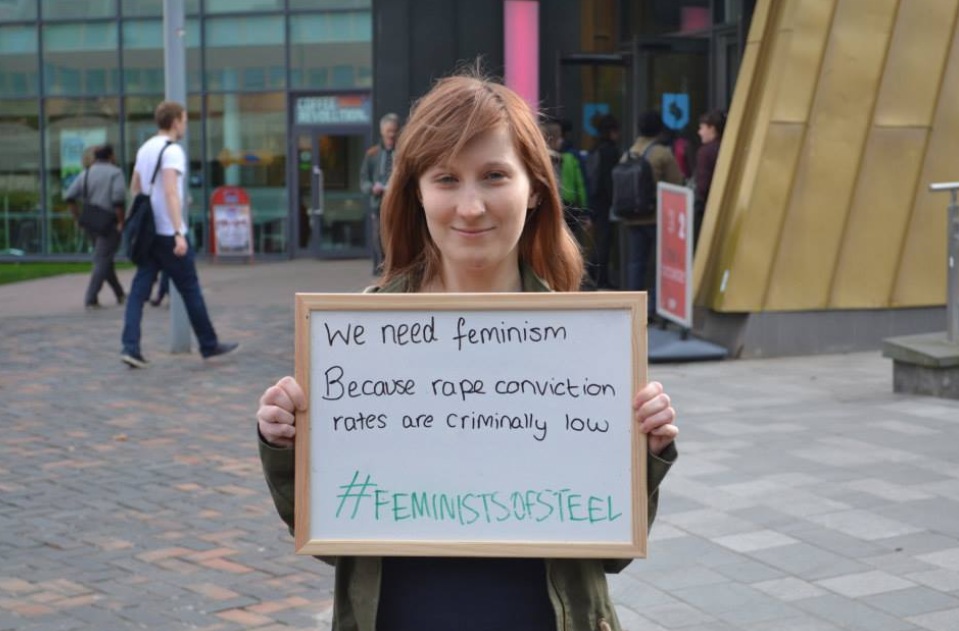 COFFEE
REVOLUTION.
We need feminism
Because rape conviction
rates are criminally low
#FEMINISTSOFSTEEL